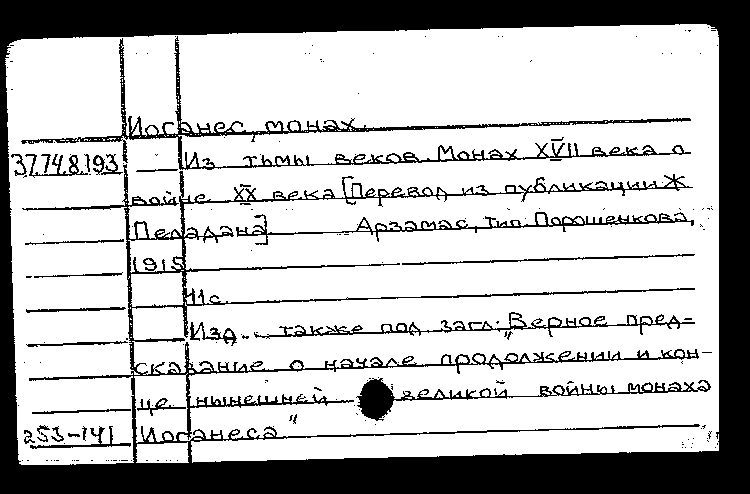 Иоганес, монах.
37.74.8.193 Из тьмы веков. Монах XVII века о
войне XX века [Перевод из публикации Ж
Пеладана] Арзамас, тип. Порошенкова,
1915
11с.
Изд. также под загл: „Верное пред=
сказание о начале продолжении и кон-
це нынешней великой войны монаха
253-141 Иоганеса"